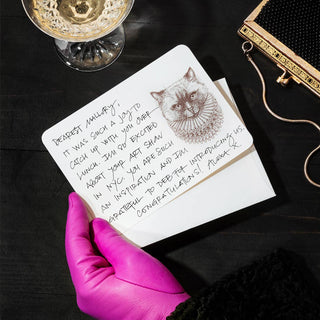 DEAREST MALLORY,
IT WAS SUCH A JOY TO
CATCH UP WITH YOU OVER
LUNCH. I'M SO EXCITED
ABOUT YOUR ART SHOW
IN NYC. YOU ARE SUCH
AN INSPIRATION AND I'M
GRATEFUL TO DEB FOR INTRODUCING US.
CONGRATULATIONS! ALEXA X